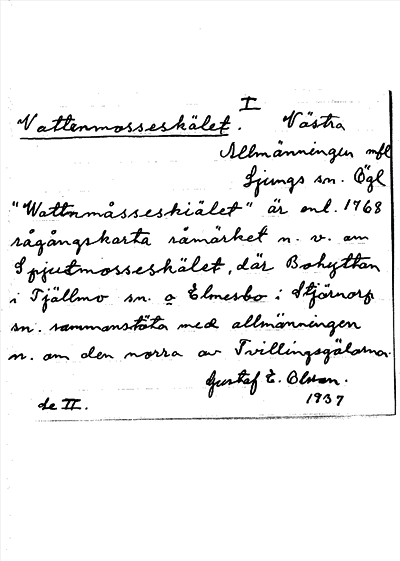 I
Vattenmosseskälet. Västra
Allmänningen mfl
Ljungs sn. Ögl
"Wattnmåsseskiälet" är enl. 1768
rågångskarta råmärket n. v. om
Spjutmosseskälet, där Bohyttan
i Tjällmo sn. o Elmesbo i Stjärnorp
sn. sammanstöta med allmänningen
n. om den norra av Tvillingsgölarna.
Gustaf E. Olsson.
de II. 1937